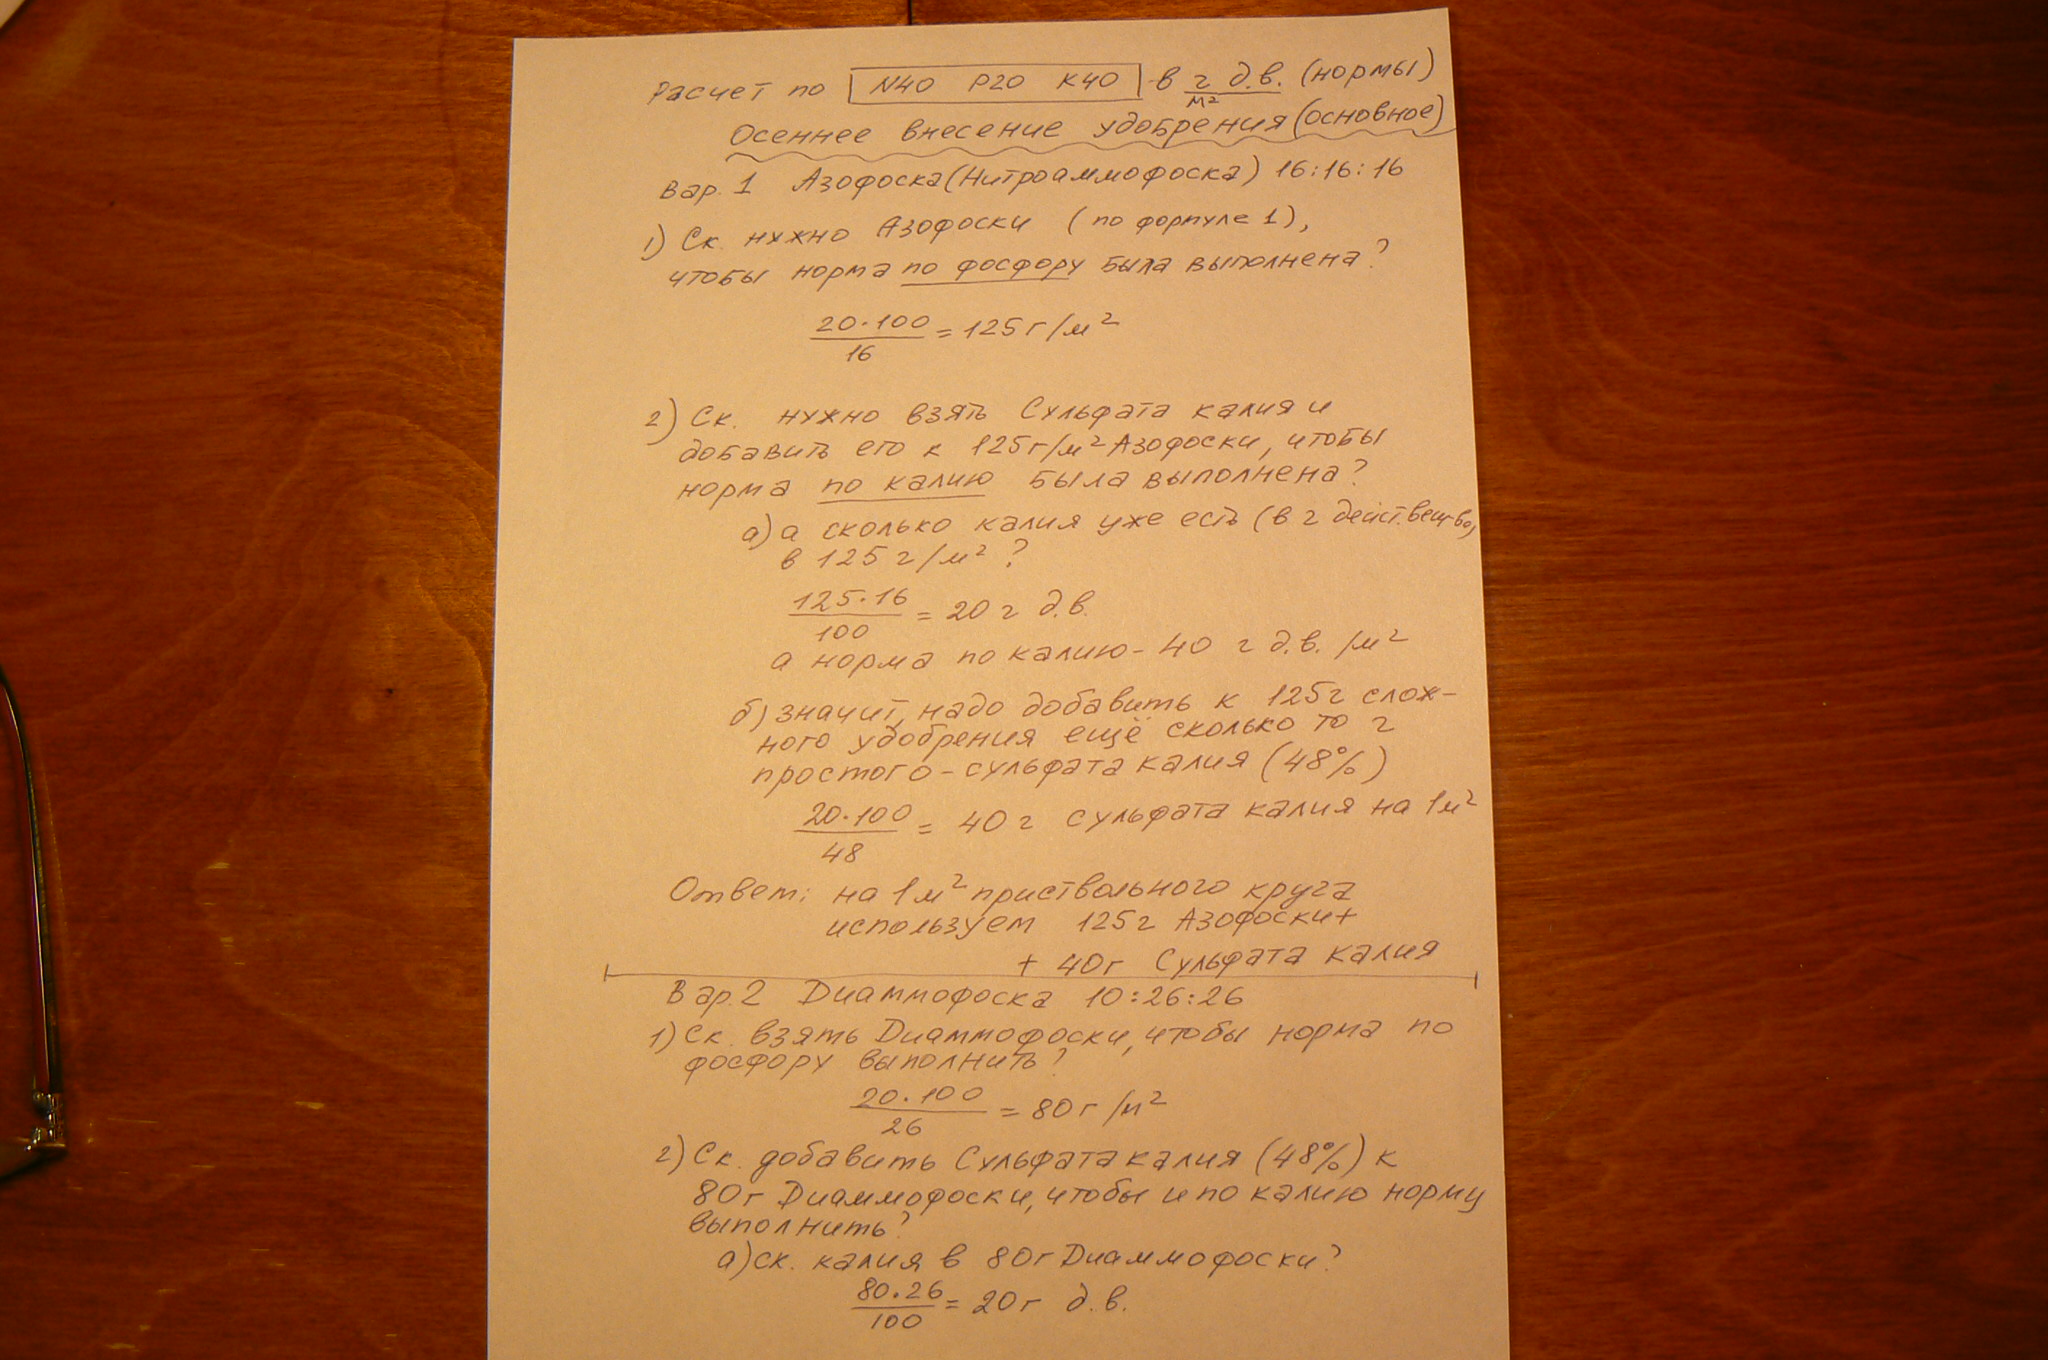 Расчет по N40 P20 K40 в г д.в./м² (нормы)
Осеннее внесение удобрения (основное)
Вар. 1 Азофоска (Нитроаммофоска) 16:16:16
1) Ск. нужно Азофоски (по формуле 1),
чтобы норма по фосфору была выполнена?
20·100/16 = 125 г/м²
2) Ск. нужно взять Сульфата калия и
добавить его к 125 г/м² Азофоски, чтобы
норма по калию была выполнена?
а) а сколько калия уже есть (в г дейст. вещ-ва)
в 125 г/м² ?
125·16/100 = 20 г д.в.
а норма по калию - 40 г д.в. /м²
б) значит, надо добавить к 125 г слож-
ного удобрения ещё сколько то г
простого - сульфата калия (48%)
20·100/48 = 40 г сульфата калия на 1 м²
Ответ: на 1 м² приствольного круга
используем 125 г Азофоски +
+ 40 г Сульфата калия
Вар. 2 Диаммофоска 10:26:26
1) Ск. взять Диаммофоски, чтобы норма по
фосфору выполнить?
20·100/26 = 80 г/м²
2) Ск. добавить Сульфата калия (48%) к
80 г Диаммофоски, чтобы и по калию норму
выполнить?
а) ск. калия в 80 г Диаммофоски?
80·26/100 = 20 г д.в.